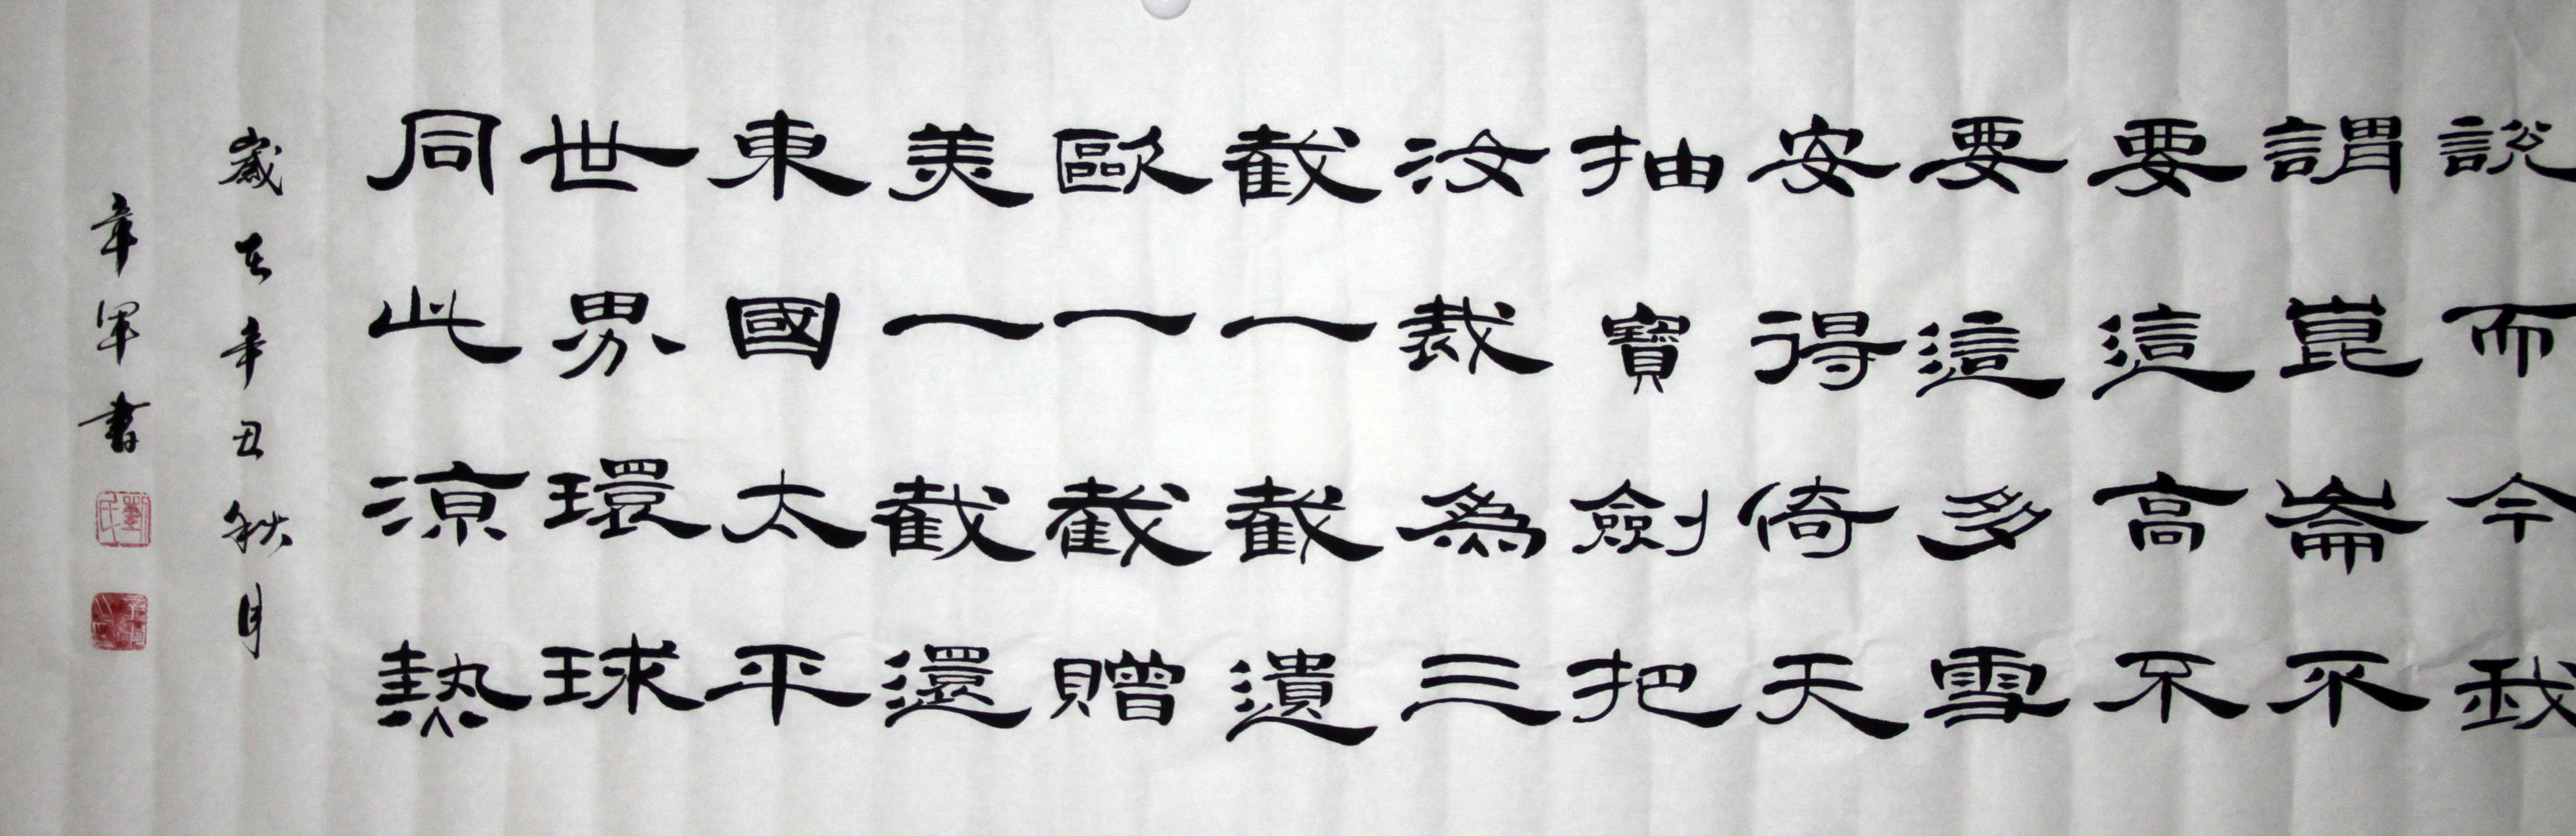 說而今我
謂崑崙不
要這高不
要這多雪
安得倚天
抽寶劍把
汝裁為三
截一截遺
歐一截贈
美一截還
東國太平
世界環球
同此涼熱
歲在辛丑秋月
軍書